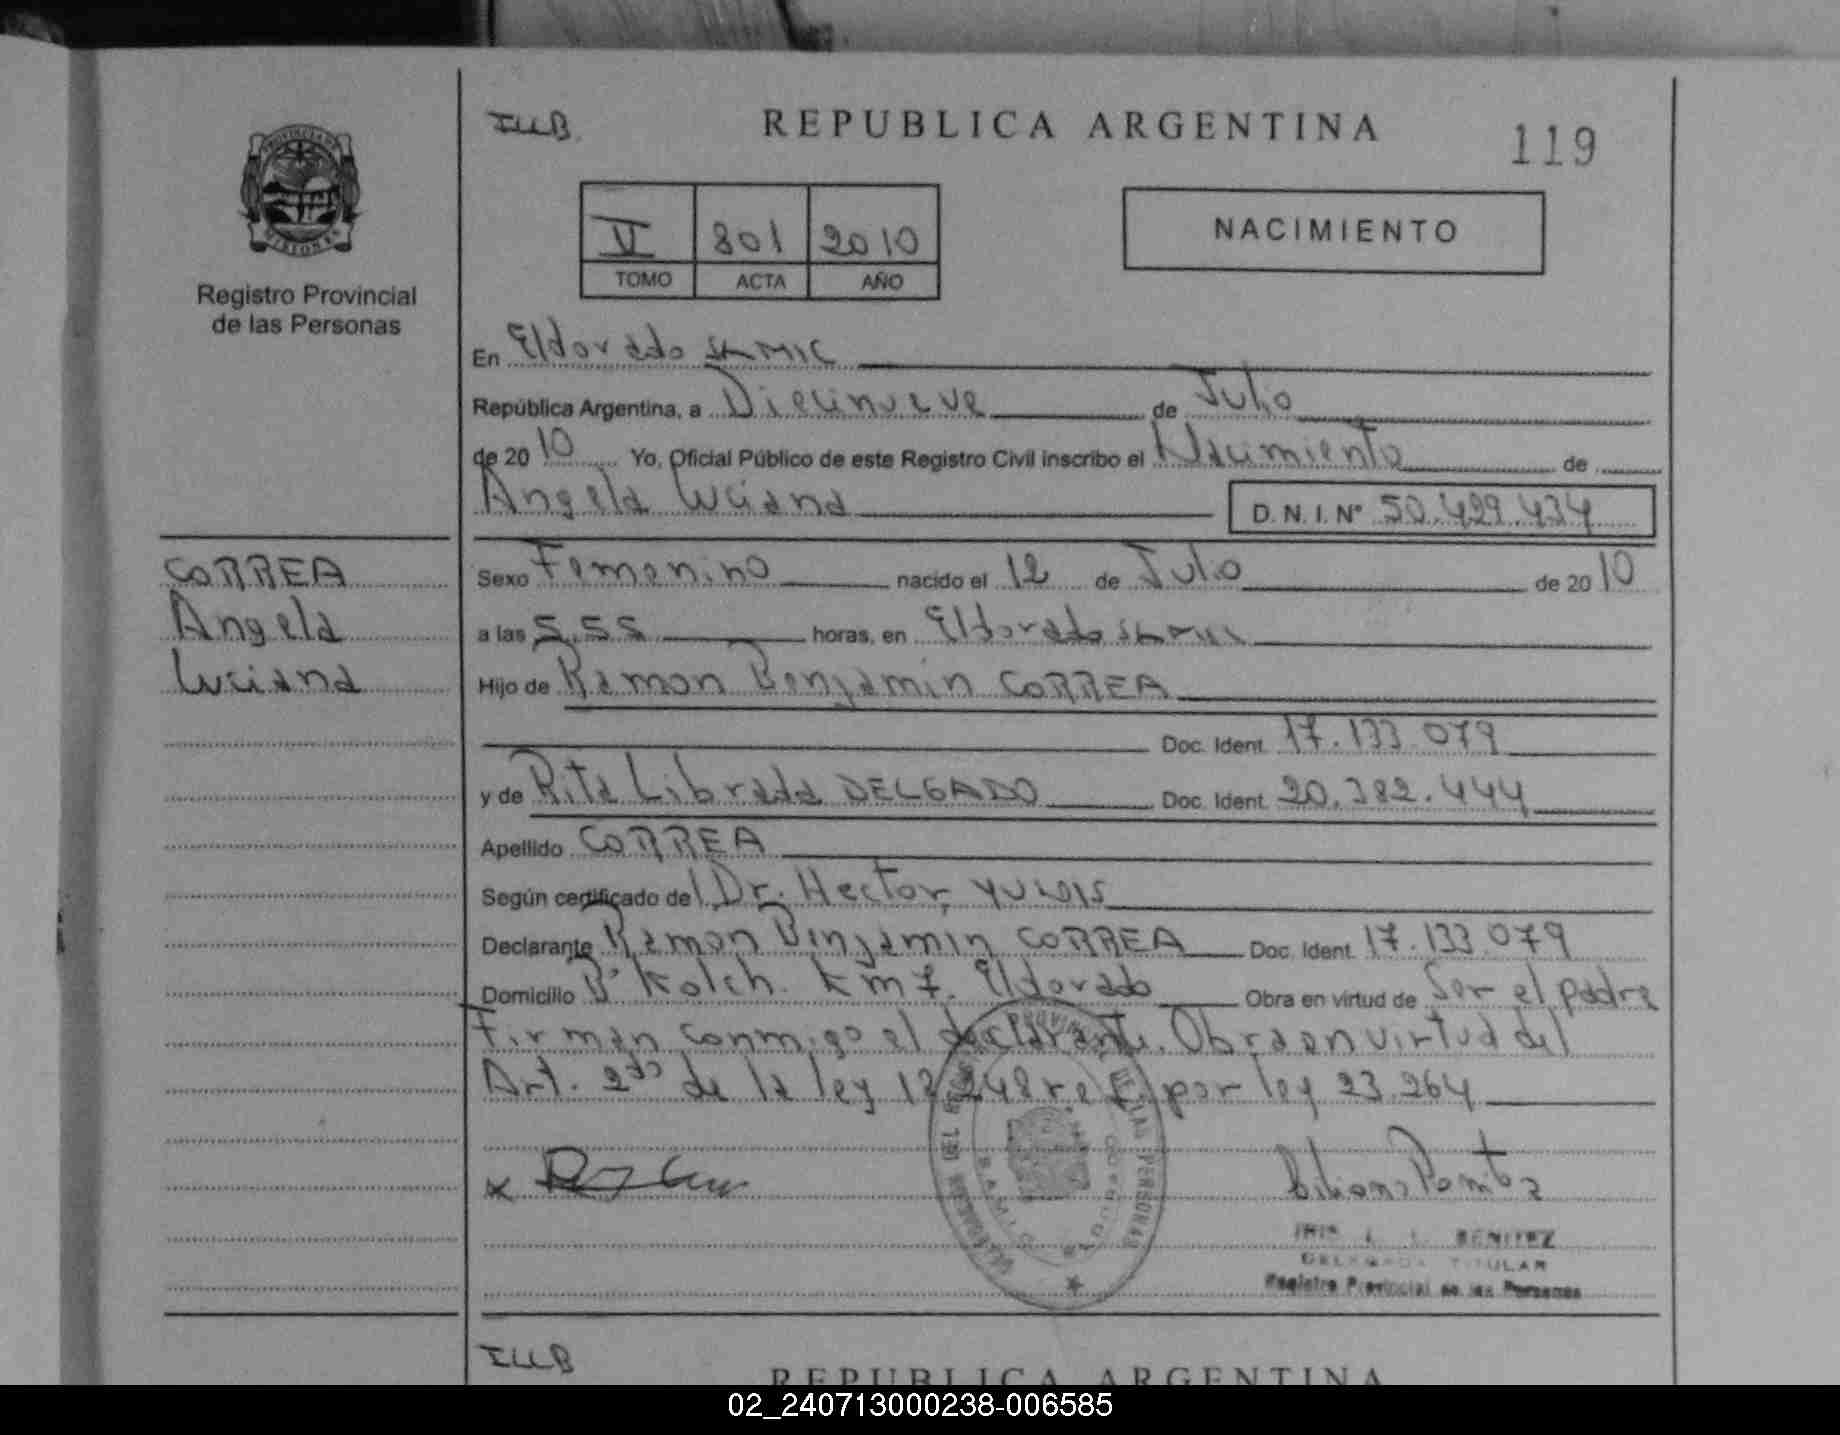 ILLB.
REPUBLICA ARGENTINA
119
V 801 2010
TOMO ACTA AÑO
NACIMIENTO
Registro Provincial
de las Personas
En Eldorado SAMIC
República Argentina, a Diecinueve de Julio
de 20 10 Yo, Oficial Público de este Registro Civil inscribo el Nacimiento de
Angela Luciana D.N.I. Nº 50.429.434
CORREA
Angela
Luciana
Sexo Femenino nacido el 12 de Julio de 20 10
a las 5.55 horas, en Eldorado SAMIC
Hijo de Ramon Benjamin CORREA
Doc. Ident. 17.133.079
y de Rita Librada DELGADO Doc. Ident. 20.382.444
Apellido CORREA
Según certificado del Dr. Hector
Declarante Ramon Benjamin CORREA Doc. Ident. 17.133.079
Domicilio Bº Kolch. Km 7. Eldorado Obra en virtud de Ser el padre
Firman conmigo el declarante. Obra en virtud del
Art. 2do de la ley 18.248 ref por ley 23.264
BENITEZ
DELEGADA TITULAR
Registro Provincial de las Personas
ILLB
REPUBLICA ARGENTINA
02_240713000238-006585